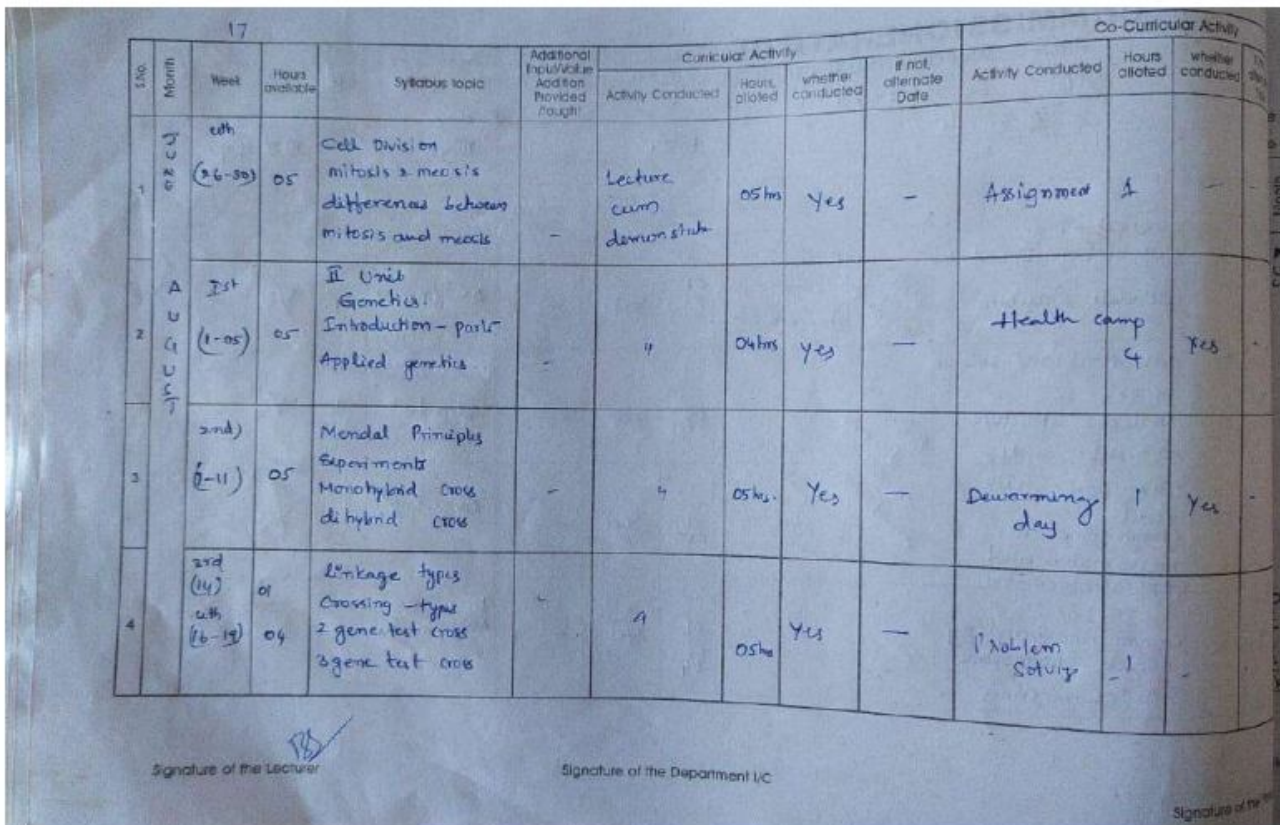 17
Co-Curricular Activity
Curricular Activity
S.No.
Month
Week
Hours available
Syllabus topic
Additional
Input/Value
Addition
Provided
Activity Conducted
Hours alloted
whether conducted
If not, alternate Date
Activity Conducted
Hours alloted
whether conducted
1
(26-30)
05
Cell Division
mitosis & meosis
differences between
mitosis and meosis
-
Lecture
cum
05 hrs
Yes
-
Assignment
1
-
AUGUST
2
Ist
(1-05)
05
II Unit
Genetics:
Introduction - parts
Applied genetics
-
"
04 hrs
yes
-
Health camp
4
Yes
3
2nd)
05
Mendal Principles
Experiments
Monohybrid cross
dihybrid cross
-
"
05 hrs.
Yes
-
Dewarming
day
1
Yes
4
3rd
(14)
01
(16-19)
04
Linkage types
Crossing - types
2 gene test cross
3 gene test cross
-
05 hrs
Yes
-
Problem
1
-
Signature of the Lecturer
Signature of the Department I/C
Signature of the